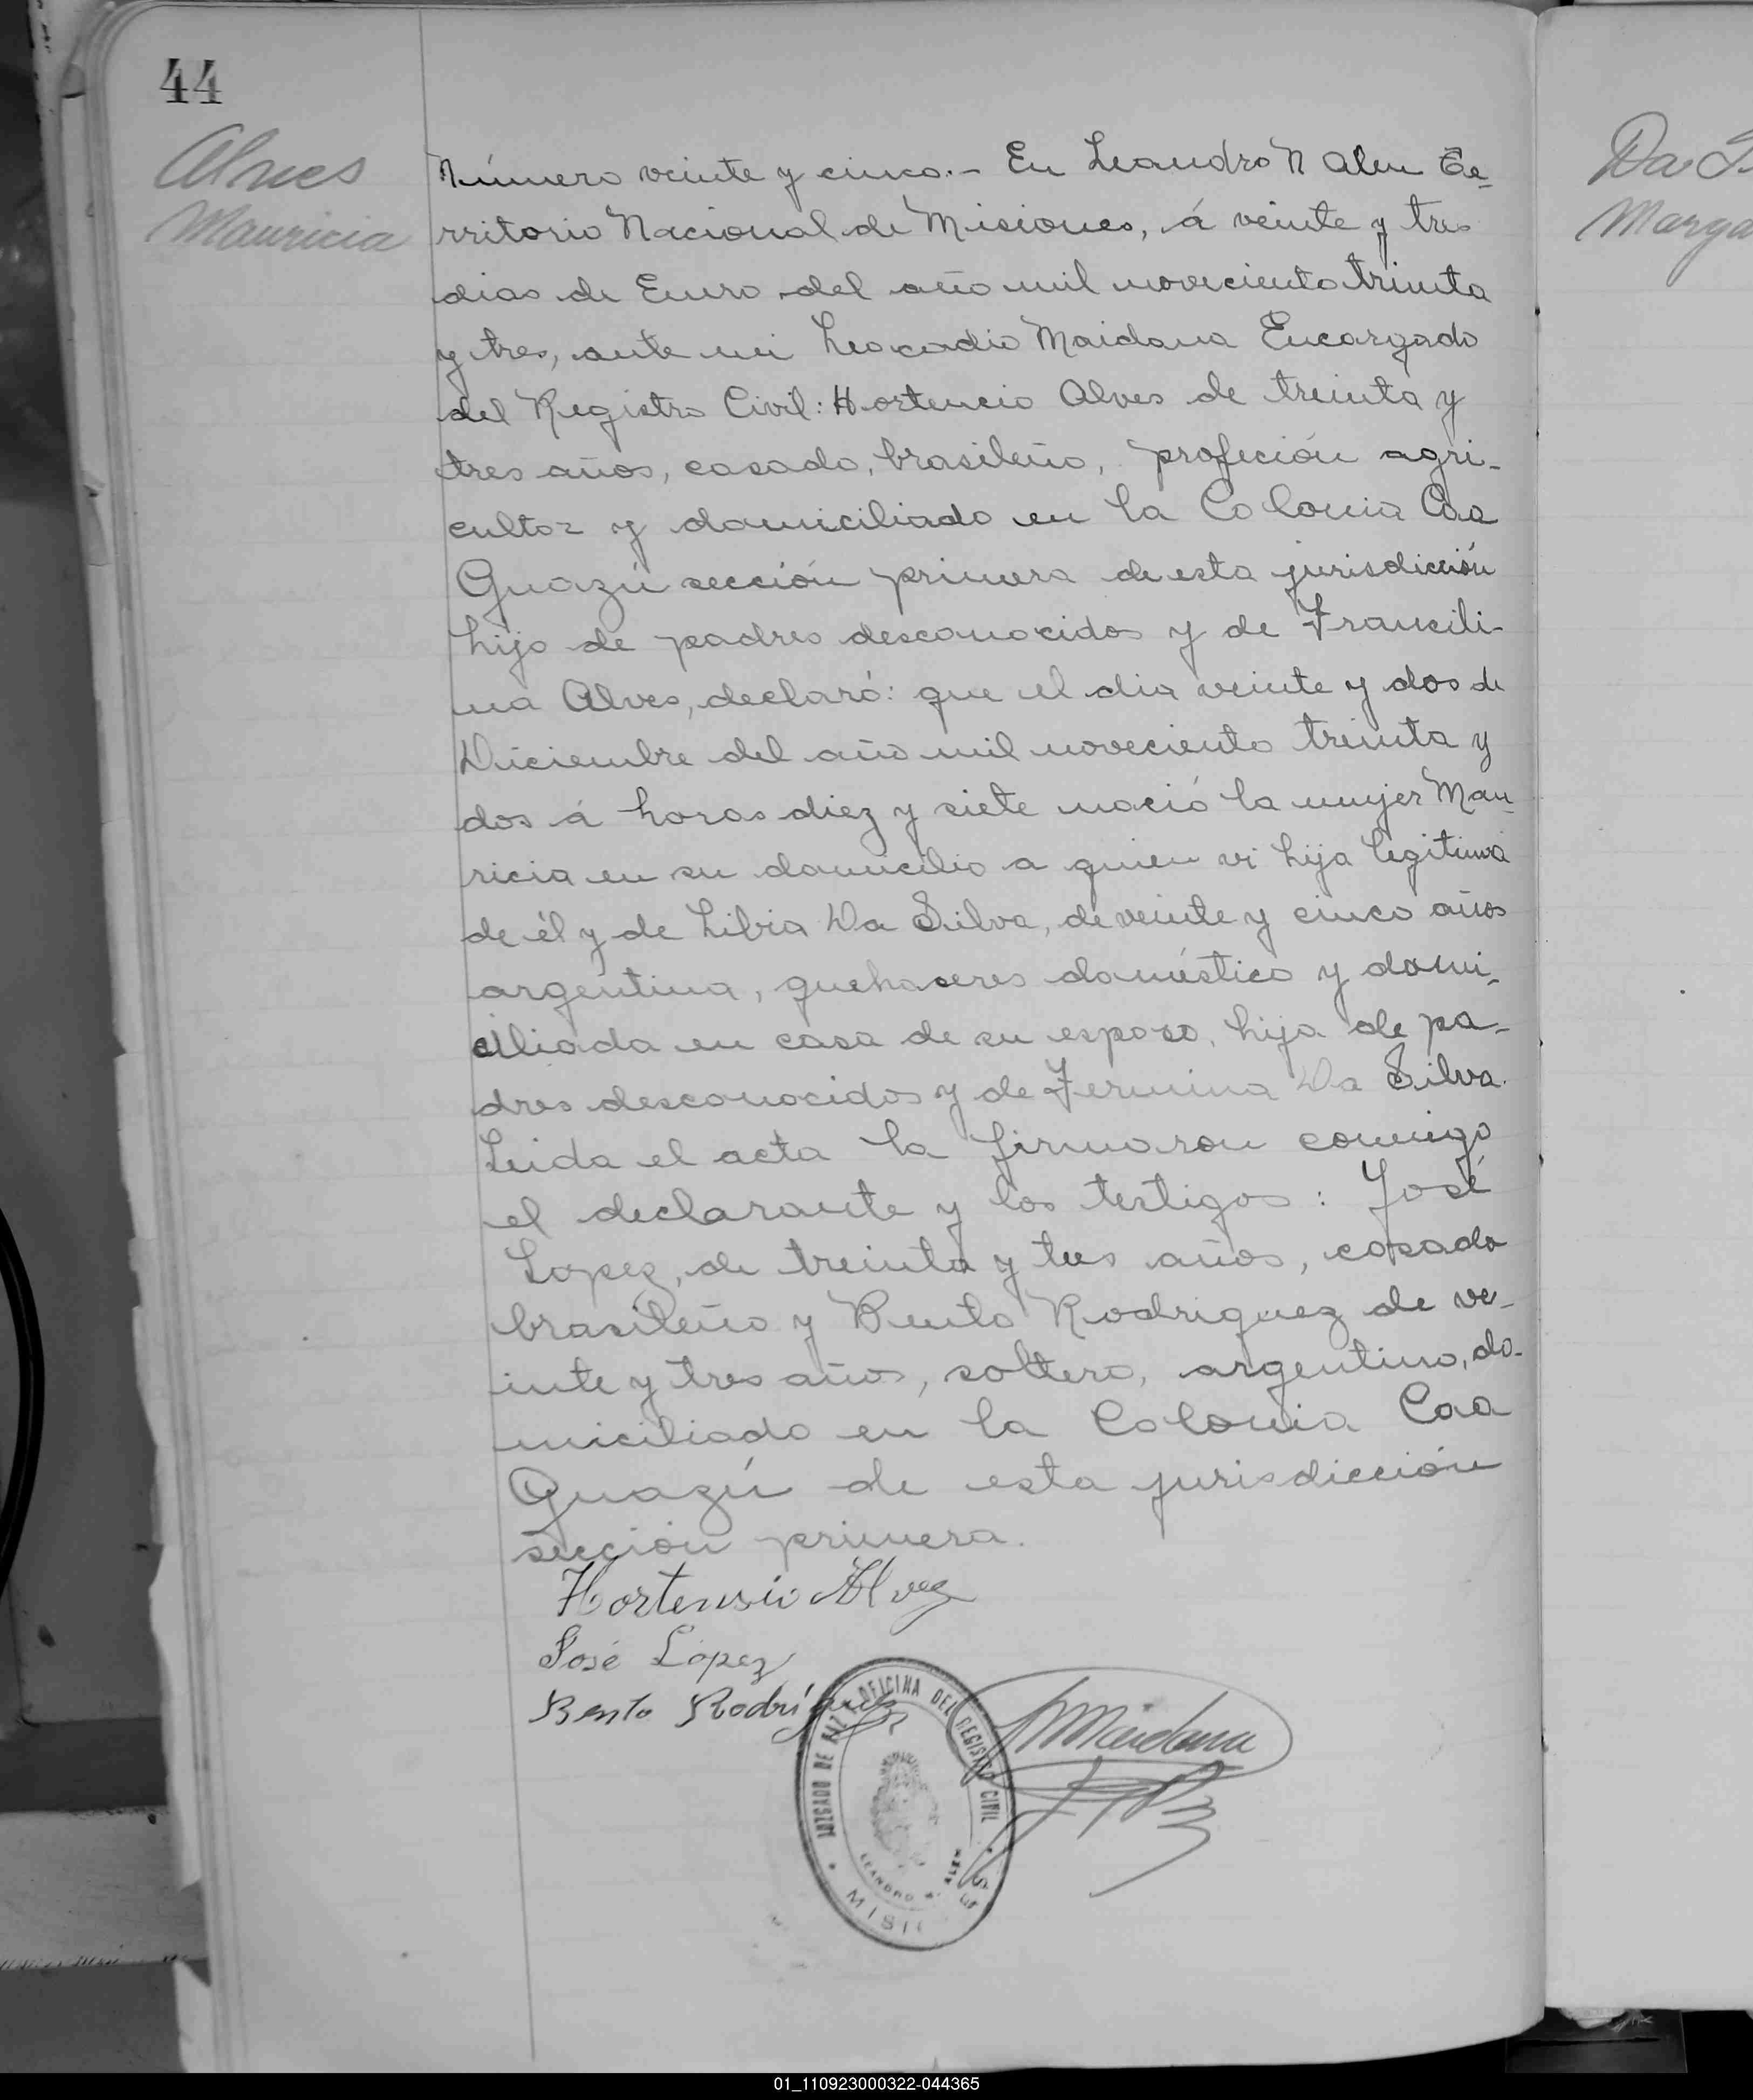 44
Alves
Mauricia
Número veinte y cinco.- En Leandro N Alem Te-
rritorio Nacional de Misiones, á veinte y tres
dias de Enero del año mil noveciento treinta
y tres, ante mi Leocadio Maidana Encargado
del Registro Civil: Hortencio Alves de treinta y
tres años, casado, brasileño, profeción agri-
cultor y domiciliado en la Colonia Caa
Guazú sección primera de esta jurisdicción
hijo de padres desconocidos y de Francili-
na Alves, declaró: que el dia veinte y dos de
Diciembre del año mil noveciento treinta y
dos á horas diez y siete nació la mujer Mau-
ricia en su domicilio a quien vi hija legitima
de él y de Libia Da Silva, de veinte y cinco años
argentina, quehaseres doméstico y domi-
ciliada en casa de su esposo, hija de pa-
dres desconocidos y de Fermina Da Silva.
Leida el acta la firmaron conmigo
el declarante y los testigos: José
Lopez, de treinta y tres años, casado
brasileño y Bento Rodriguez de ve-
inte y tres años, soltero, argentino, do-
miciliado en la Colonia Caa
Guazú de esta jurisdicción
sección primera.
Hortensio Alvez
José López
Bento Rodríguez
Maidana
JUZGADO DE PAZ Y OFICINA DEL REGISTRO CIVIL
LEANDRO N. ALEM
Da
Marga
01_110923000322-044365